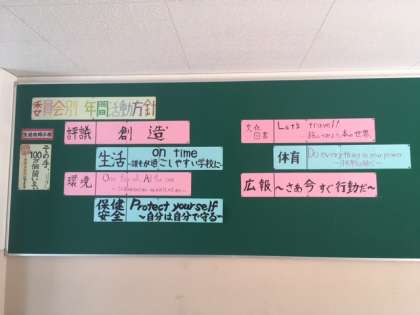 委員会別 年間活動方針
評議 創造
生活 on time
～誰もが過ごしやすい学校に～
環境 One for all, All for one
保健安全 Protect yourself
～自分は自分で守る～
文化図書 Let's travel!!
体育 Do everything in your power
広報 ～さあ今すぐ行動だ～
その手、
100万個